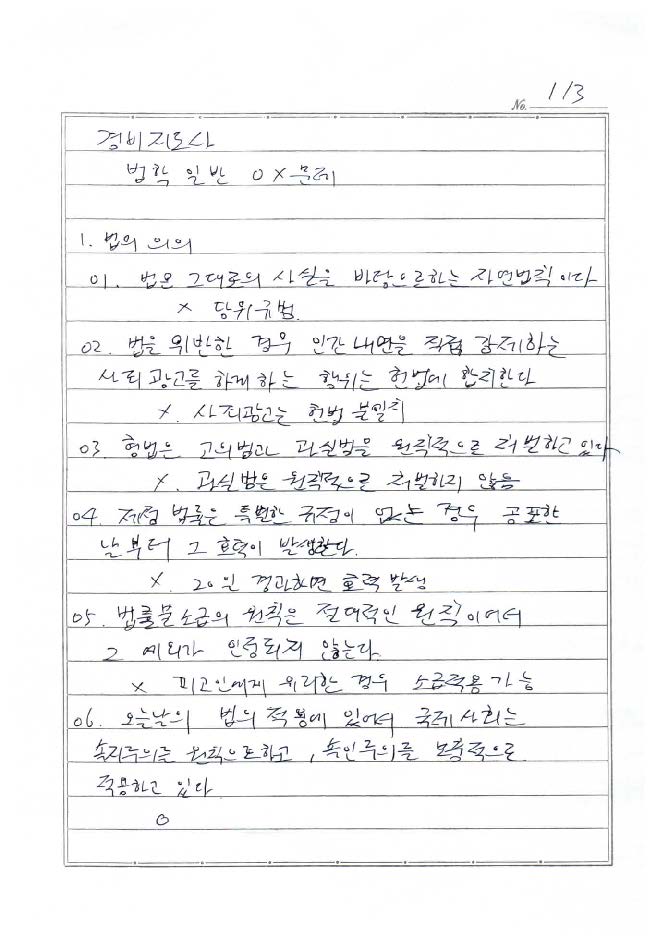 No. 1/3
경비지도사
법학 일반 O X 문제
1. 법의 의의
01. 법은 그대로의 사실을 바탕으로하는 자연법칙이다
X 당위규범.
02. 법을 위반한 경우 인간내면을 직접 강제하는
사죄광고를 하게하는 행위는 헌법에 합치한다
X. 사죄광고는 헌법 불일치
03. 형법은 고의범과 과실범을 원칙적으로 처벌하고 있다
X. 과실범은 원칙적으로 처벌하지 않음
04. 제정 법률은 특별한 규정이 없는 경우 공포한
날부터 그 효력이 발생한다.
X. 20일 경과하면 효력 발생
05. 법률불소급의 원칙은 절대적인 원칙이어서
그 예외가 인정되지 않는다.
X 피고인에게 유리한 경우 소급적용 가능
06. 오늘날의 법의 적용에 있어서 국제사회는
속지주의를 원칙으로하고, 속인주의를 보충적으로
적용하고 있다
O